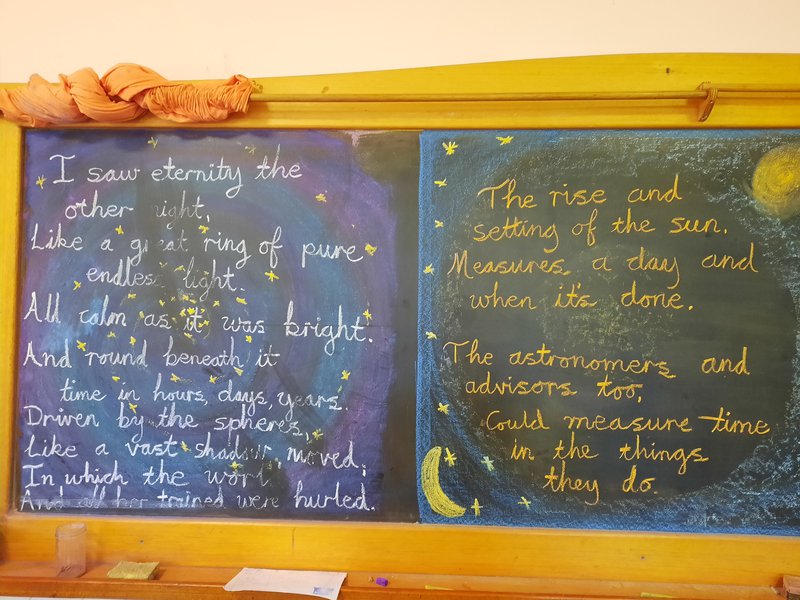 I saw eternity the
other night,
Like a great ring of pure
endless light.
All calm as it was bright.
And round beneath it
time in hours, days, years.
Driven by the spheres,
Like a vast shadow, moved;
In which the worl
And all her trained were hurled.
The rise and
setting of the sun.
Measures a day and
when it's done.
The astronomers and
advisors too,
Could measure time
in the things
they do.